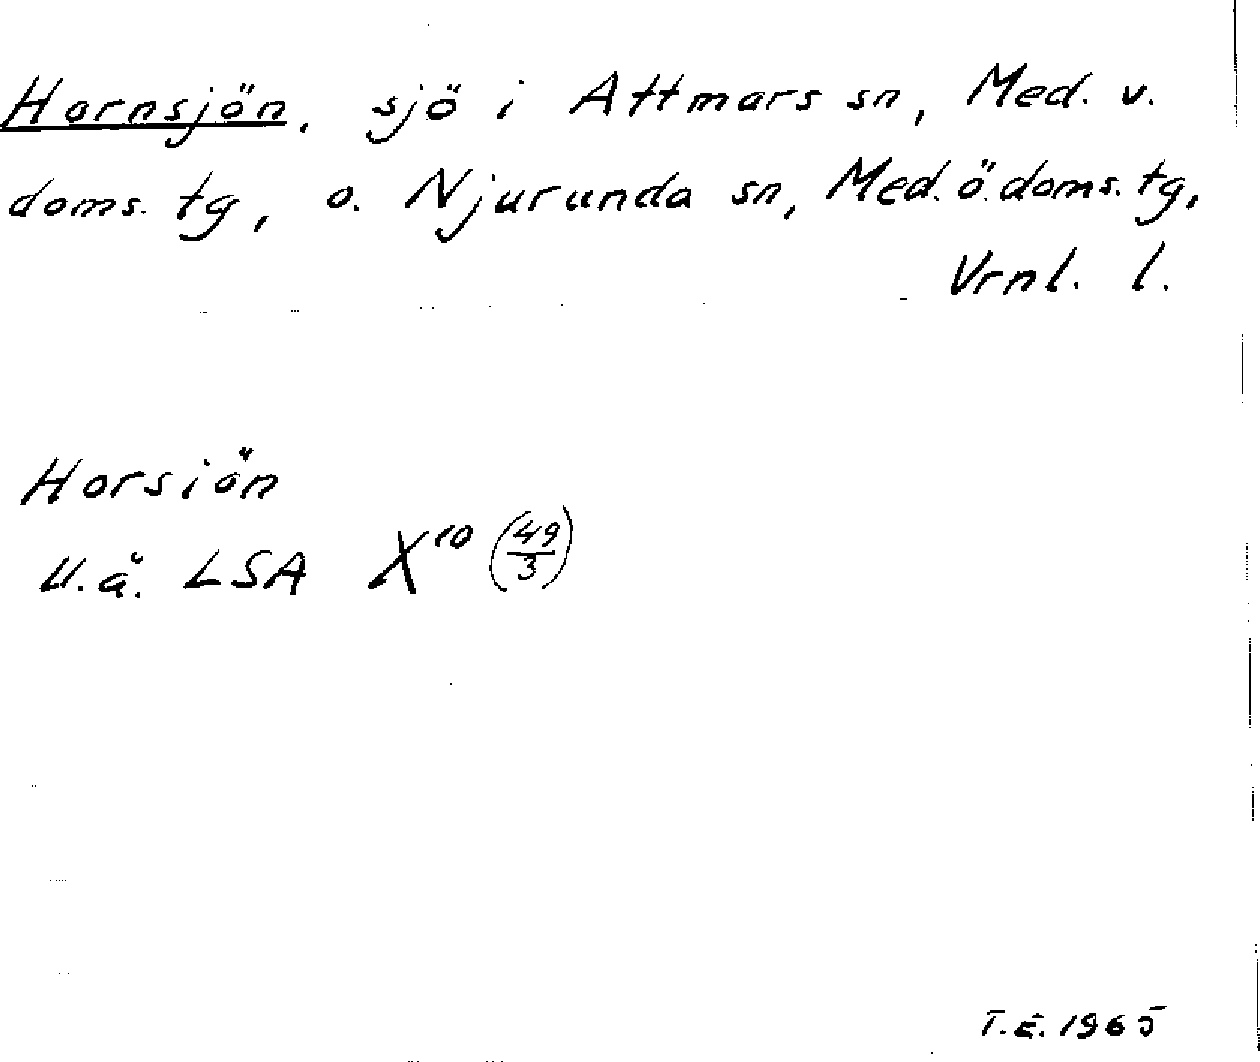 Hornsjön, sjö i Attmars sn, Med. v.
doms. tg, o. Njurunda sn, Med. ö. doms. tg,
Vrnl. l.
Horsiön
U.å. LSA X¹⁰ (49/3)
T.E. 1965